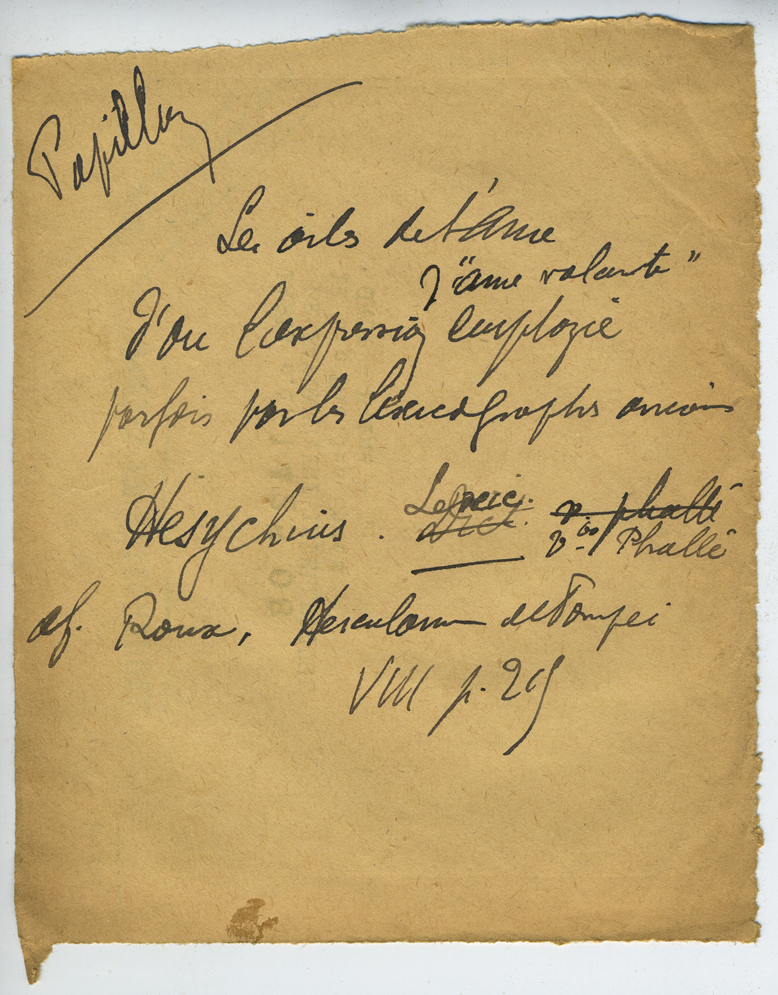 Papillon
Les ailes de l'âme
"âme volante"
D'où l'expression employée
parfois par les lexicographes anciens
Hésychius. Lexic. v. phallé
v° Phallé
cf. Roux, Herculanum et Pompei
VIII p.